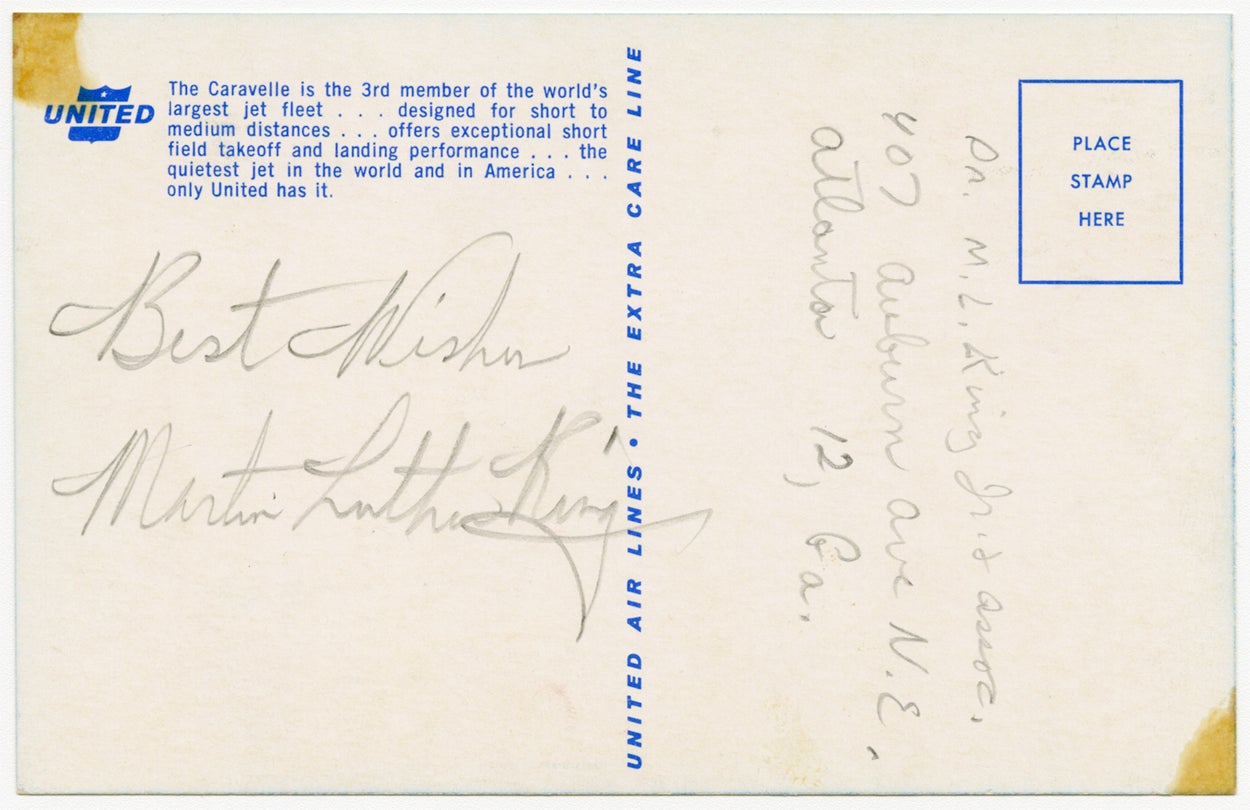 UNITED
The Caravelle is the 3rd member of the world's
largest jet fleet . . . designed for short to
medium distances . . . offers exceptional short
field takeoff and landing performance . . . the
quietest jet in the world and in America . . .
only United has it.
Best Wishes
Martin Luther King
UNITED AIR LINES • THE EXTRA CARE LINE
PLACE
STAMP
HERE
Dr. M. L. King Jr. & assoc.
407 auburn ave N.E.
atlanta 12, Ga.